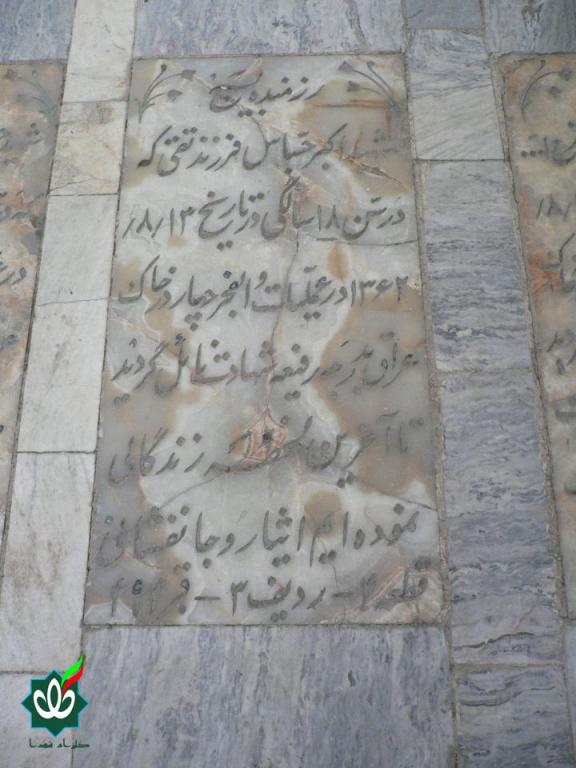 رزمنده بسیج
شهید اکبر عباسی فرزند تقی که
در سن ۱۸ سالگی در تاریخ ۱۳/۸/
۱۳۶۲ در عملیات والفجر چهار در خاک
عراق بدرجه رفیعه شهادت نائل گردید
تا آخرین لحظه زندگانی
نموده ایم ایثار و جانفشانی
قطعه ۴ - ردیف ۳ -
گلزار شهدا